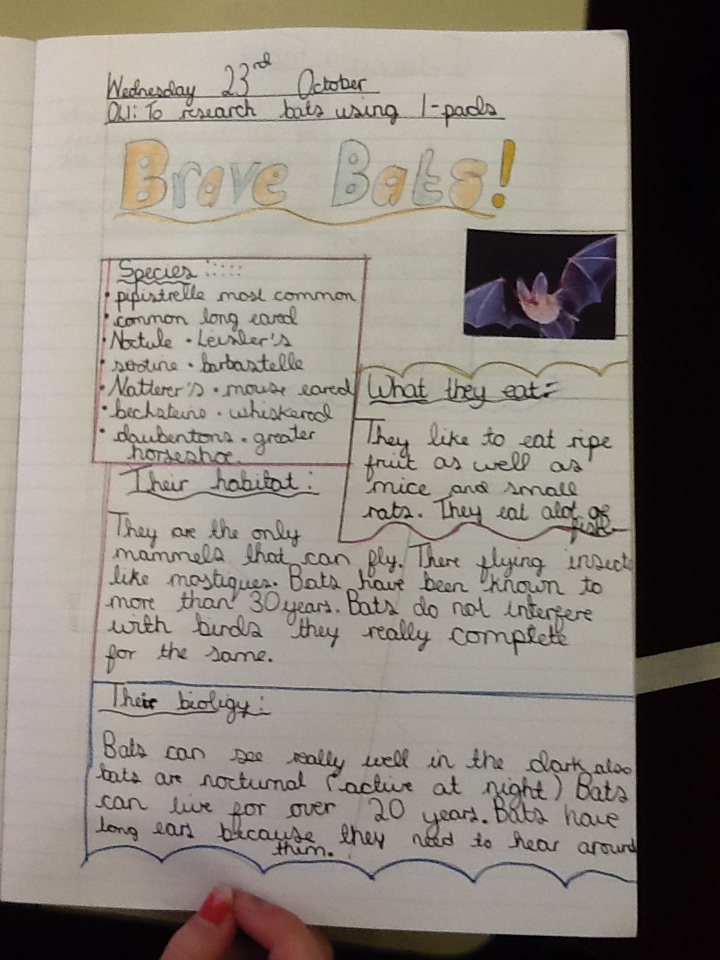 Wednesday 23rd October
OLI: To research bats using I-pads
Brave Bats!
Species :::::
• pipistrelle most common
• common long eared
• Noctule • Leisler's
• serotine • barbastelle
• Natterer's • mouse eared
• bechsteins • whiskered
• daubentons • greater
horseshoe.
What they eat:
They like to eat ripe
fruit as well as
mice and small
rats. They eat alot of
fish
Their habitat:
They are the only
mammels that can fly. There flying insects
like mostiques. Bats have been known to
more than 30 years. Bats do not interfere
with birds they really complete
for the same.
Their bioligy:
Bats can see really well in the dark also
bats are nocturnal (active at night) Bats
can live for over 20 years. Bats have
long ears because they need to hear around
them.